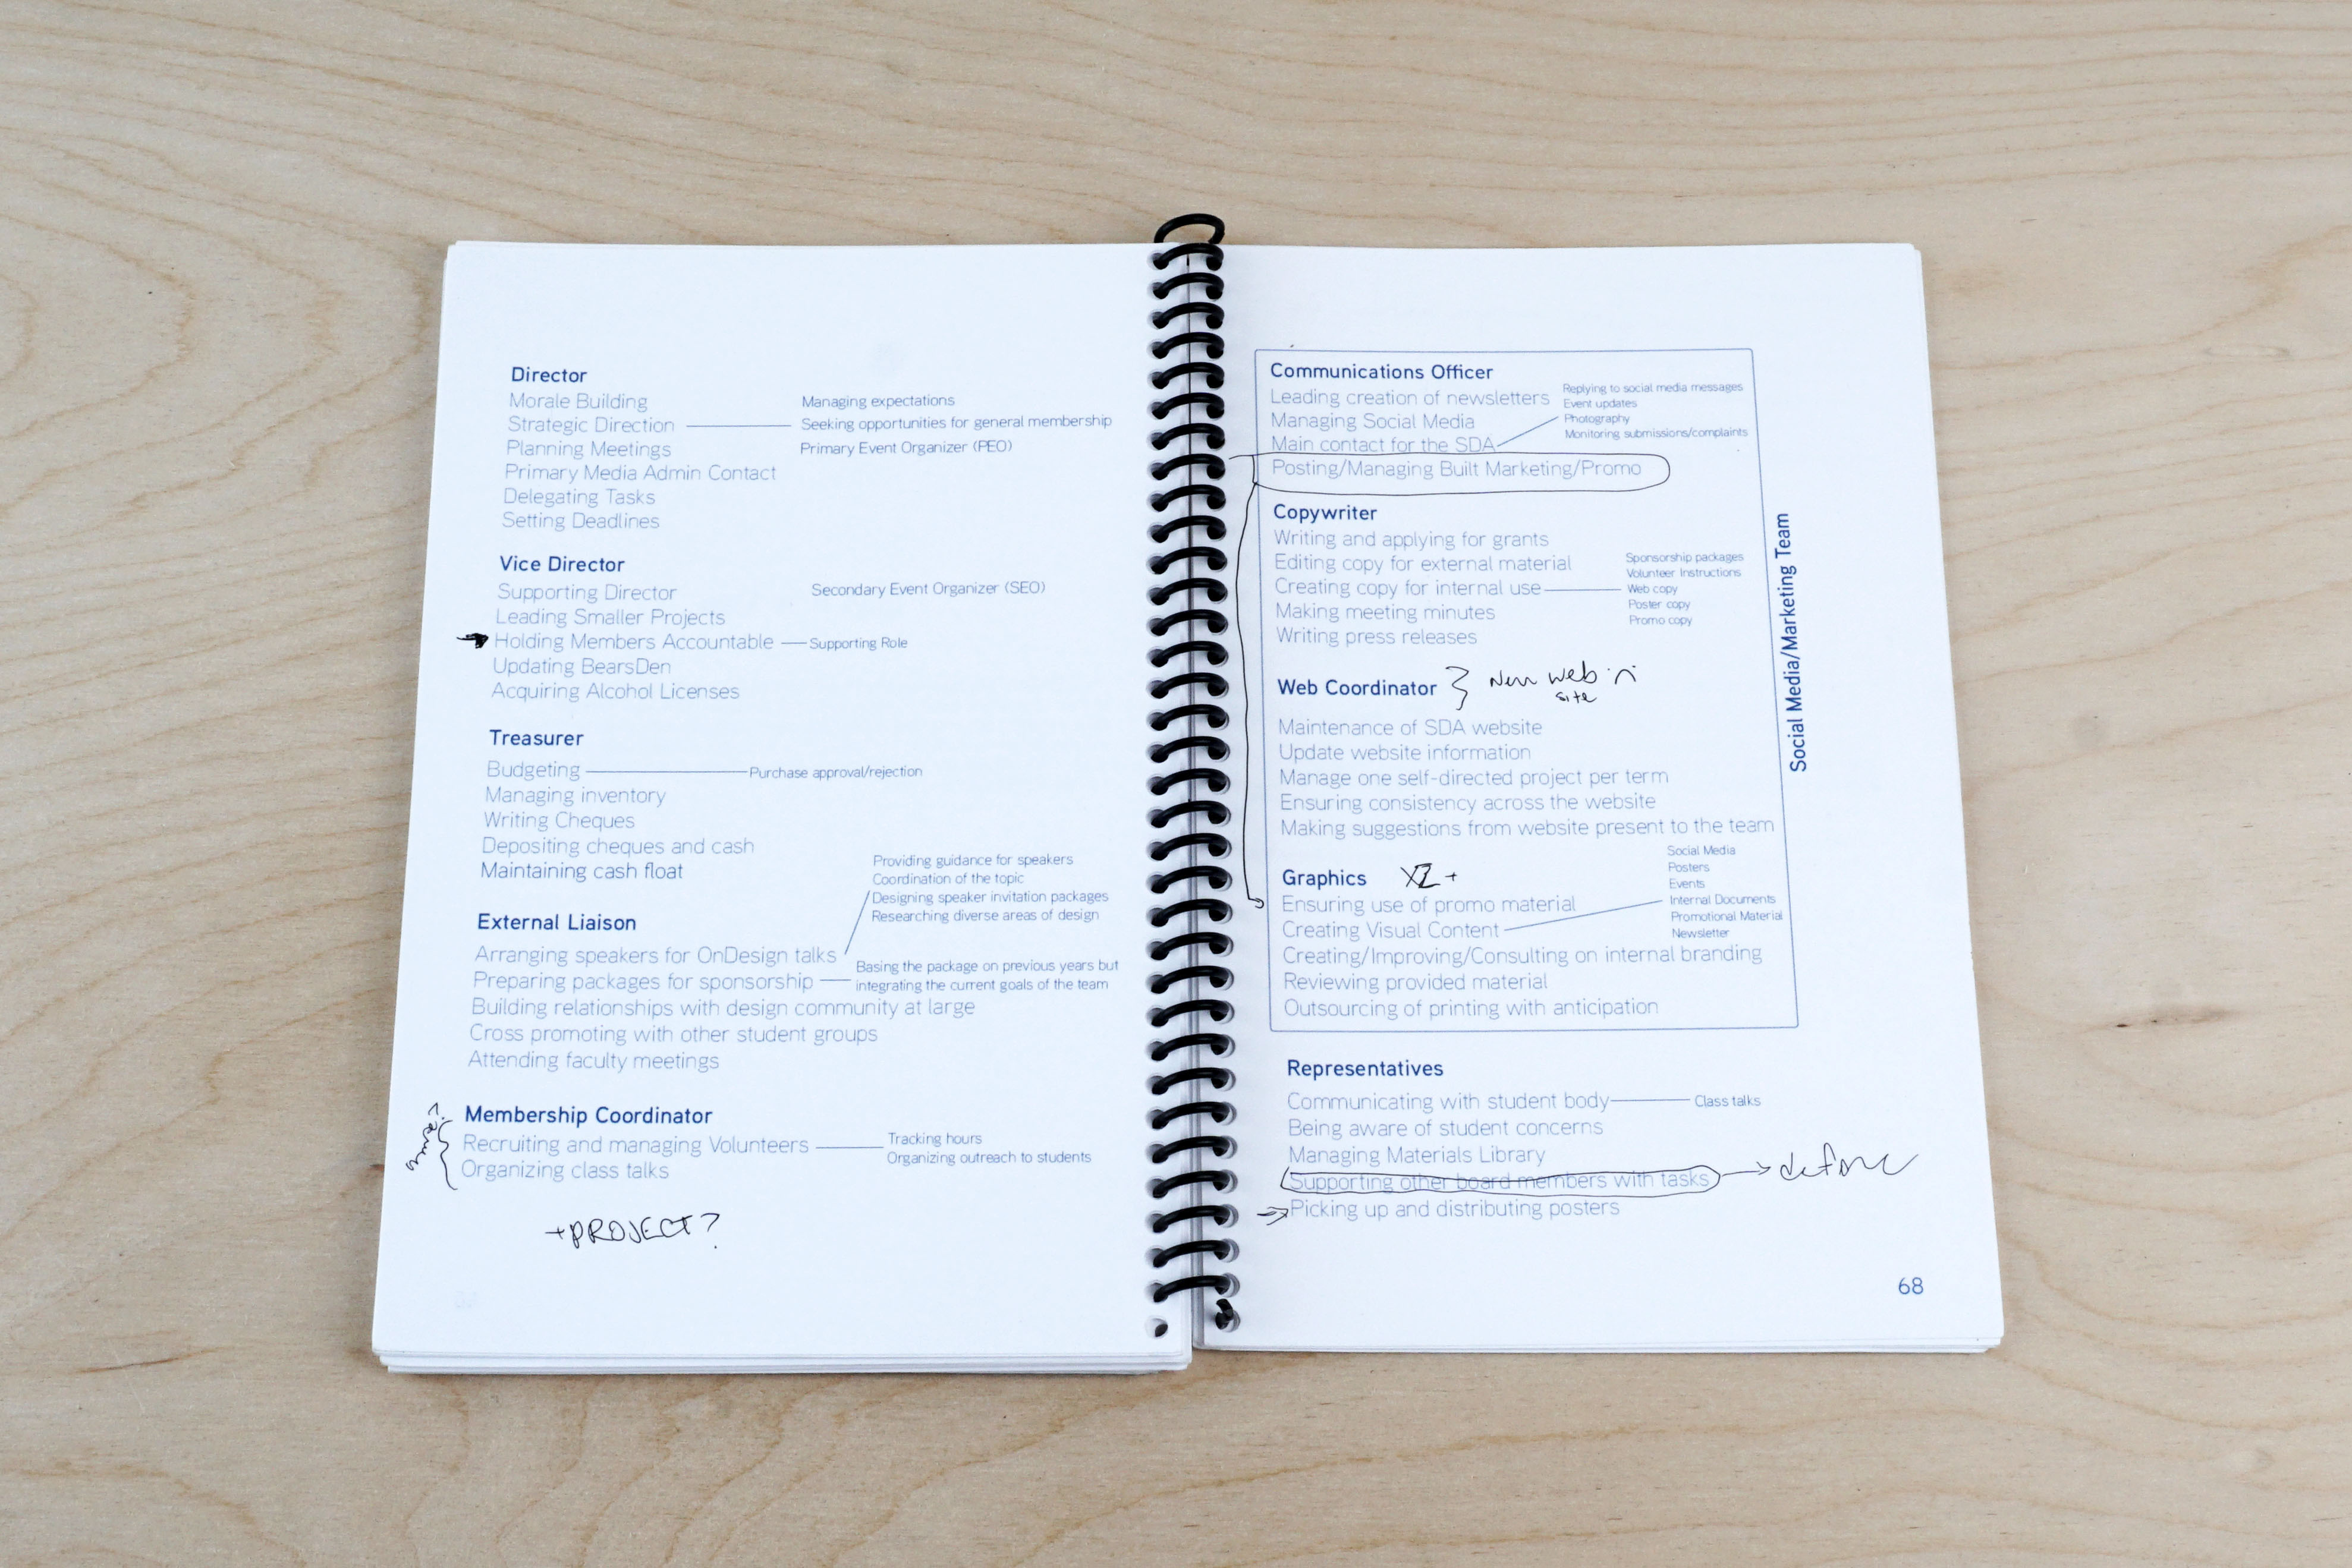 Director
Morale Building
Managing expectations
Strategic Direction
Seeking opportunities for general membership
Planning Meetings
Primary Event Organizer (PEO)
Primary Media Admin Contact
Delegating Tasks
Setting Deadlines
Vice Director
Supporting Director
Secondary Event Organizer (SEO)
Leading Smaller Projects
Holding Members Accountable
Supporting Role
Updating BearsDen
Acquiring Alcohol Licenses
Treasurer
Budgeting
Purchase approval/rejection
Managing inventory
Writing Cheques
Depositing cheques and cash
Maintaining cash float
External Liaison
Arranging speakers for OnDesign talks
Providing guidance for speakers
Coordination of the topic
Designing speaker invitation packages
Researching diverse areas of design
Preparing packages for sponsorship
Basing the package on previous years but
integrating the current goals of the team
Building relationships with design community at large
Cross promoting with other student groups
Attending faculty meetings
Membership Coordinator
Recruiting and managing Volunteers
Tracking hours
Organizing outreach to students
Organizing class talks
+PROJECT?
Communications Officer
Leading creation of newsletters
Managing Social Media
Main contact for the SDA
Replying to social media messages
Event updates
Photography
Monitoring submissions/complaints
Posting/Managing Built Marketing/Promo
Copywriter
Writing and applying for grants
Editing copy for external material
Creating copy for internal use
Sponsorship packages
Volunteer Instructions
Web copy
Poster copy
Promo copy
Making meeting minutes
Writing press releases
Web Coordinator
New web
site
Maintenance of SDA website
Update website information
Manage one self-directed project per term
Ensuring consistency across the website
Making suggestions from website present to the team
Graphics
Ensuring use of promo material
Creating Visual Content
Social Media
Posters
Events
Internal Documents
Promotional Material
Newsletter
Creating/Improving/Consulting on internal branding
Reviewing provided material
Outsourcing of printing with anticipation
Social Media/Marketing Team
Representatives
Communicating with student body
Class talks
Being aware of student concerns
Managing Materials Library
Supporting other board members with tasks
define
Picking up and distributing posters
68